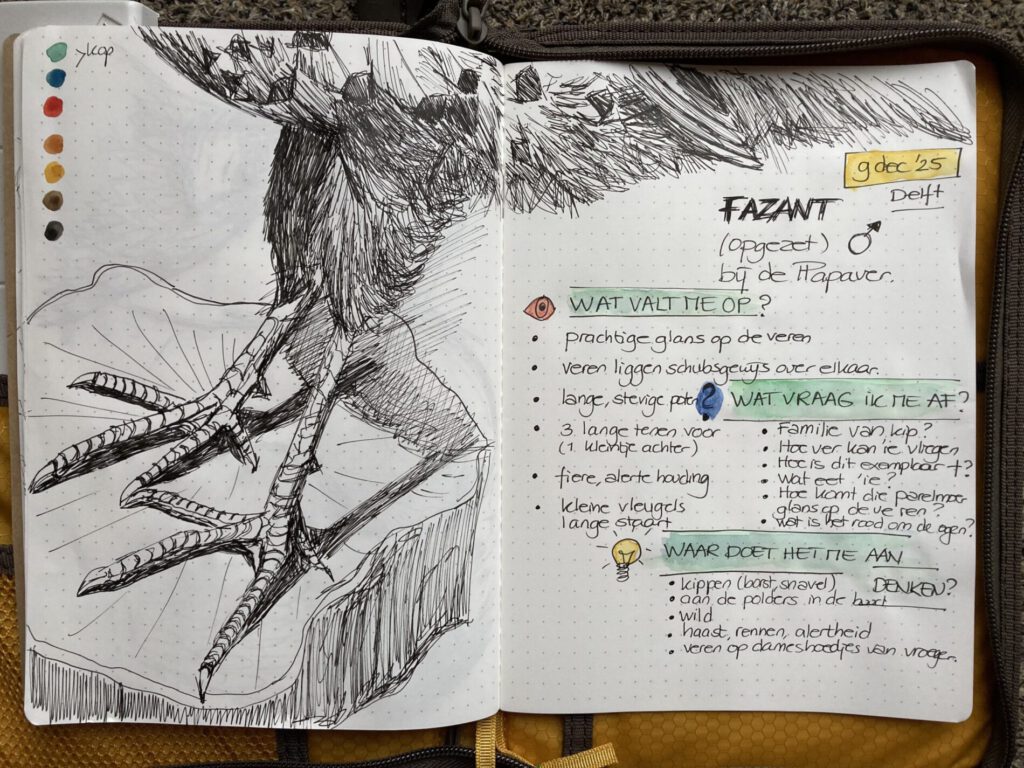 kop
9 dec '25
Delft
FAZANT
(opgezet) ♂
bij de Papaver.
WAT VALT ME OP?
• prachtige glans op de veren
• veren liggen schubsgewijs over elkaar.
• lange, stevige poten
• 3 lange tenen voor
(1 kleintje achter)
• fiere, alerte houding
• kleine vleugels
lange staart
? WAT VRAAG IK ME AF?
• Familie van kip?
• Hoe ver kan 'ie vliegen
• Hoe is dit exemplaar †?
• Wat eet 'ie?
• Hoe komt die parelmoer
glans op de veren?
• Wat is het rood om de ogen?
WAAR DOET HET ME AAN
DENKEN?
• kippen (borst, snavel)
• aan de polders in de buurt
• wild
• haast, rennen, alertheid
• veren op dameshoedjes van vroeger.